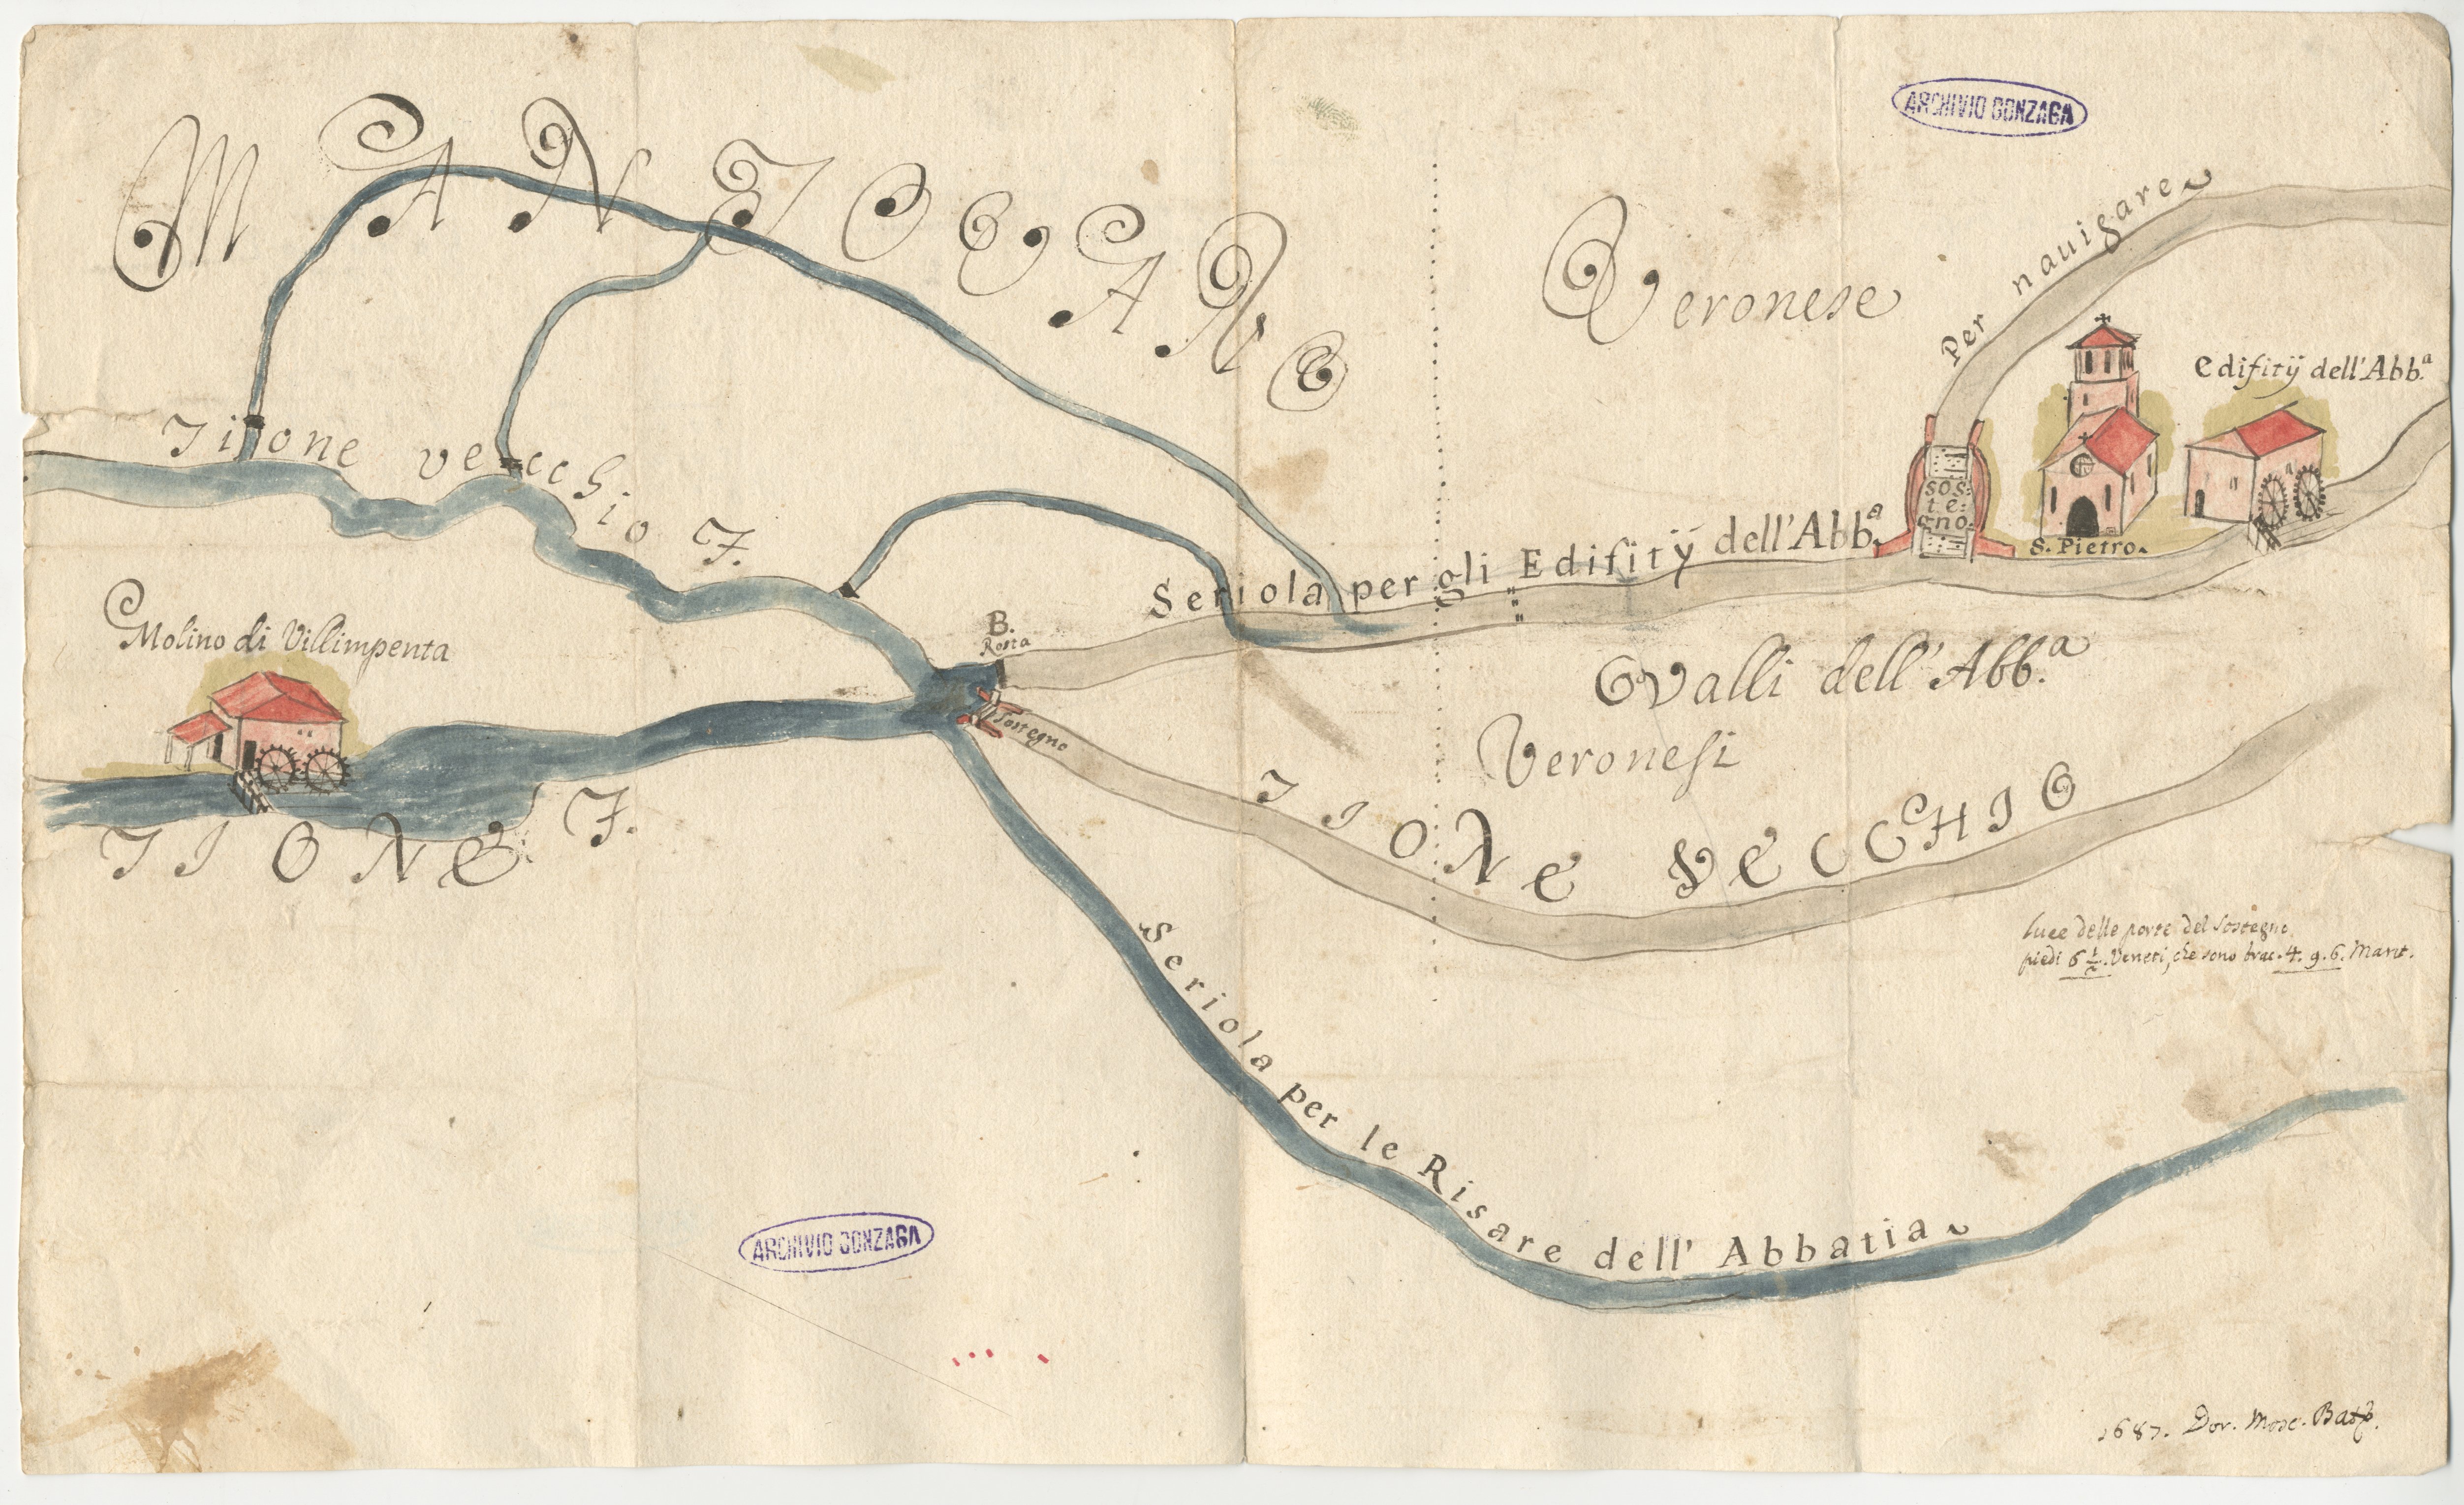 ARCHIVIO GONZAGA
MANTOVANO
Veronese
Per nauigare
Edifitÿ dell'Abb.ª
Tione vecchio F.
sos:
te:
gno.
S. Pietro.
Seriola per gli Edifitÿ dell'Abb.ª
Molino di Villimpenta
B.
Rosta
Sostegno
Valli dell'Abb.ª
Veronesi
TIONE F.
TIONE VECCHIO
Luce delle porte del Sostegno
piedi 6 ½. Veneti, che sono brac. 4. 9. 6. Mant.
Seriola per le Risare dell' Abbatia
ARCHIVIO GONZAGA
1687. Dor. Mosc. Batt.